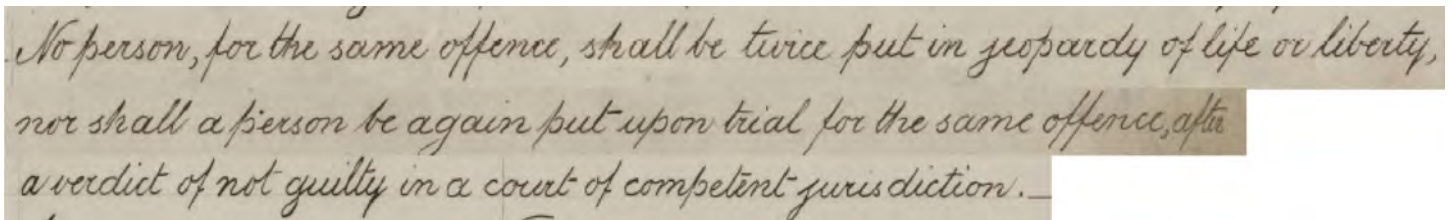 No person, for the same offence, shall be twice put in jeopardy of life or liberty,
nor shall a person be again put upon trial for the same offence, after
a verdict of not guilty in a court of competent jurisdiction._